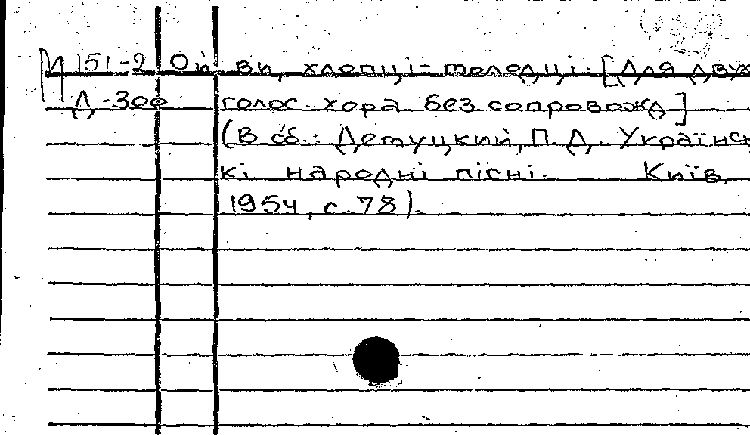 М 151-2 Ой ви, хлопці-молодці. [Для двух
Д-300 голос. хора без сопровожд]
(В сб.: Демуцкий, П. Д. Українсь
кі народні пісні. Київ,
1954, с. 78).